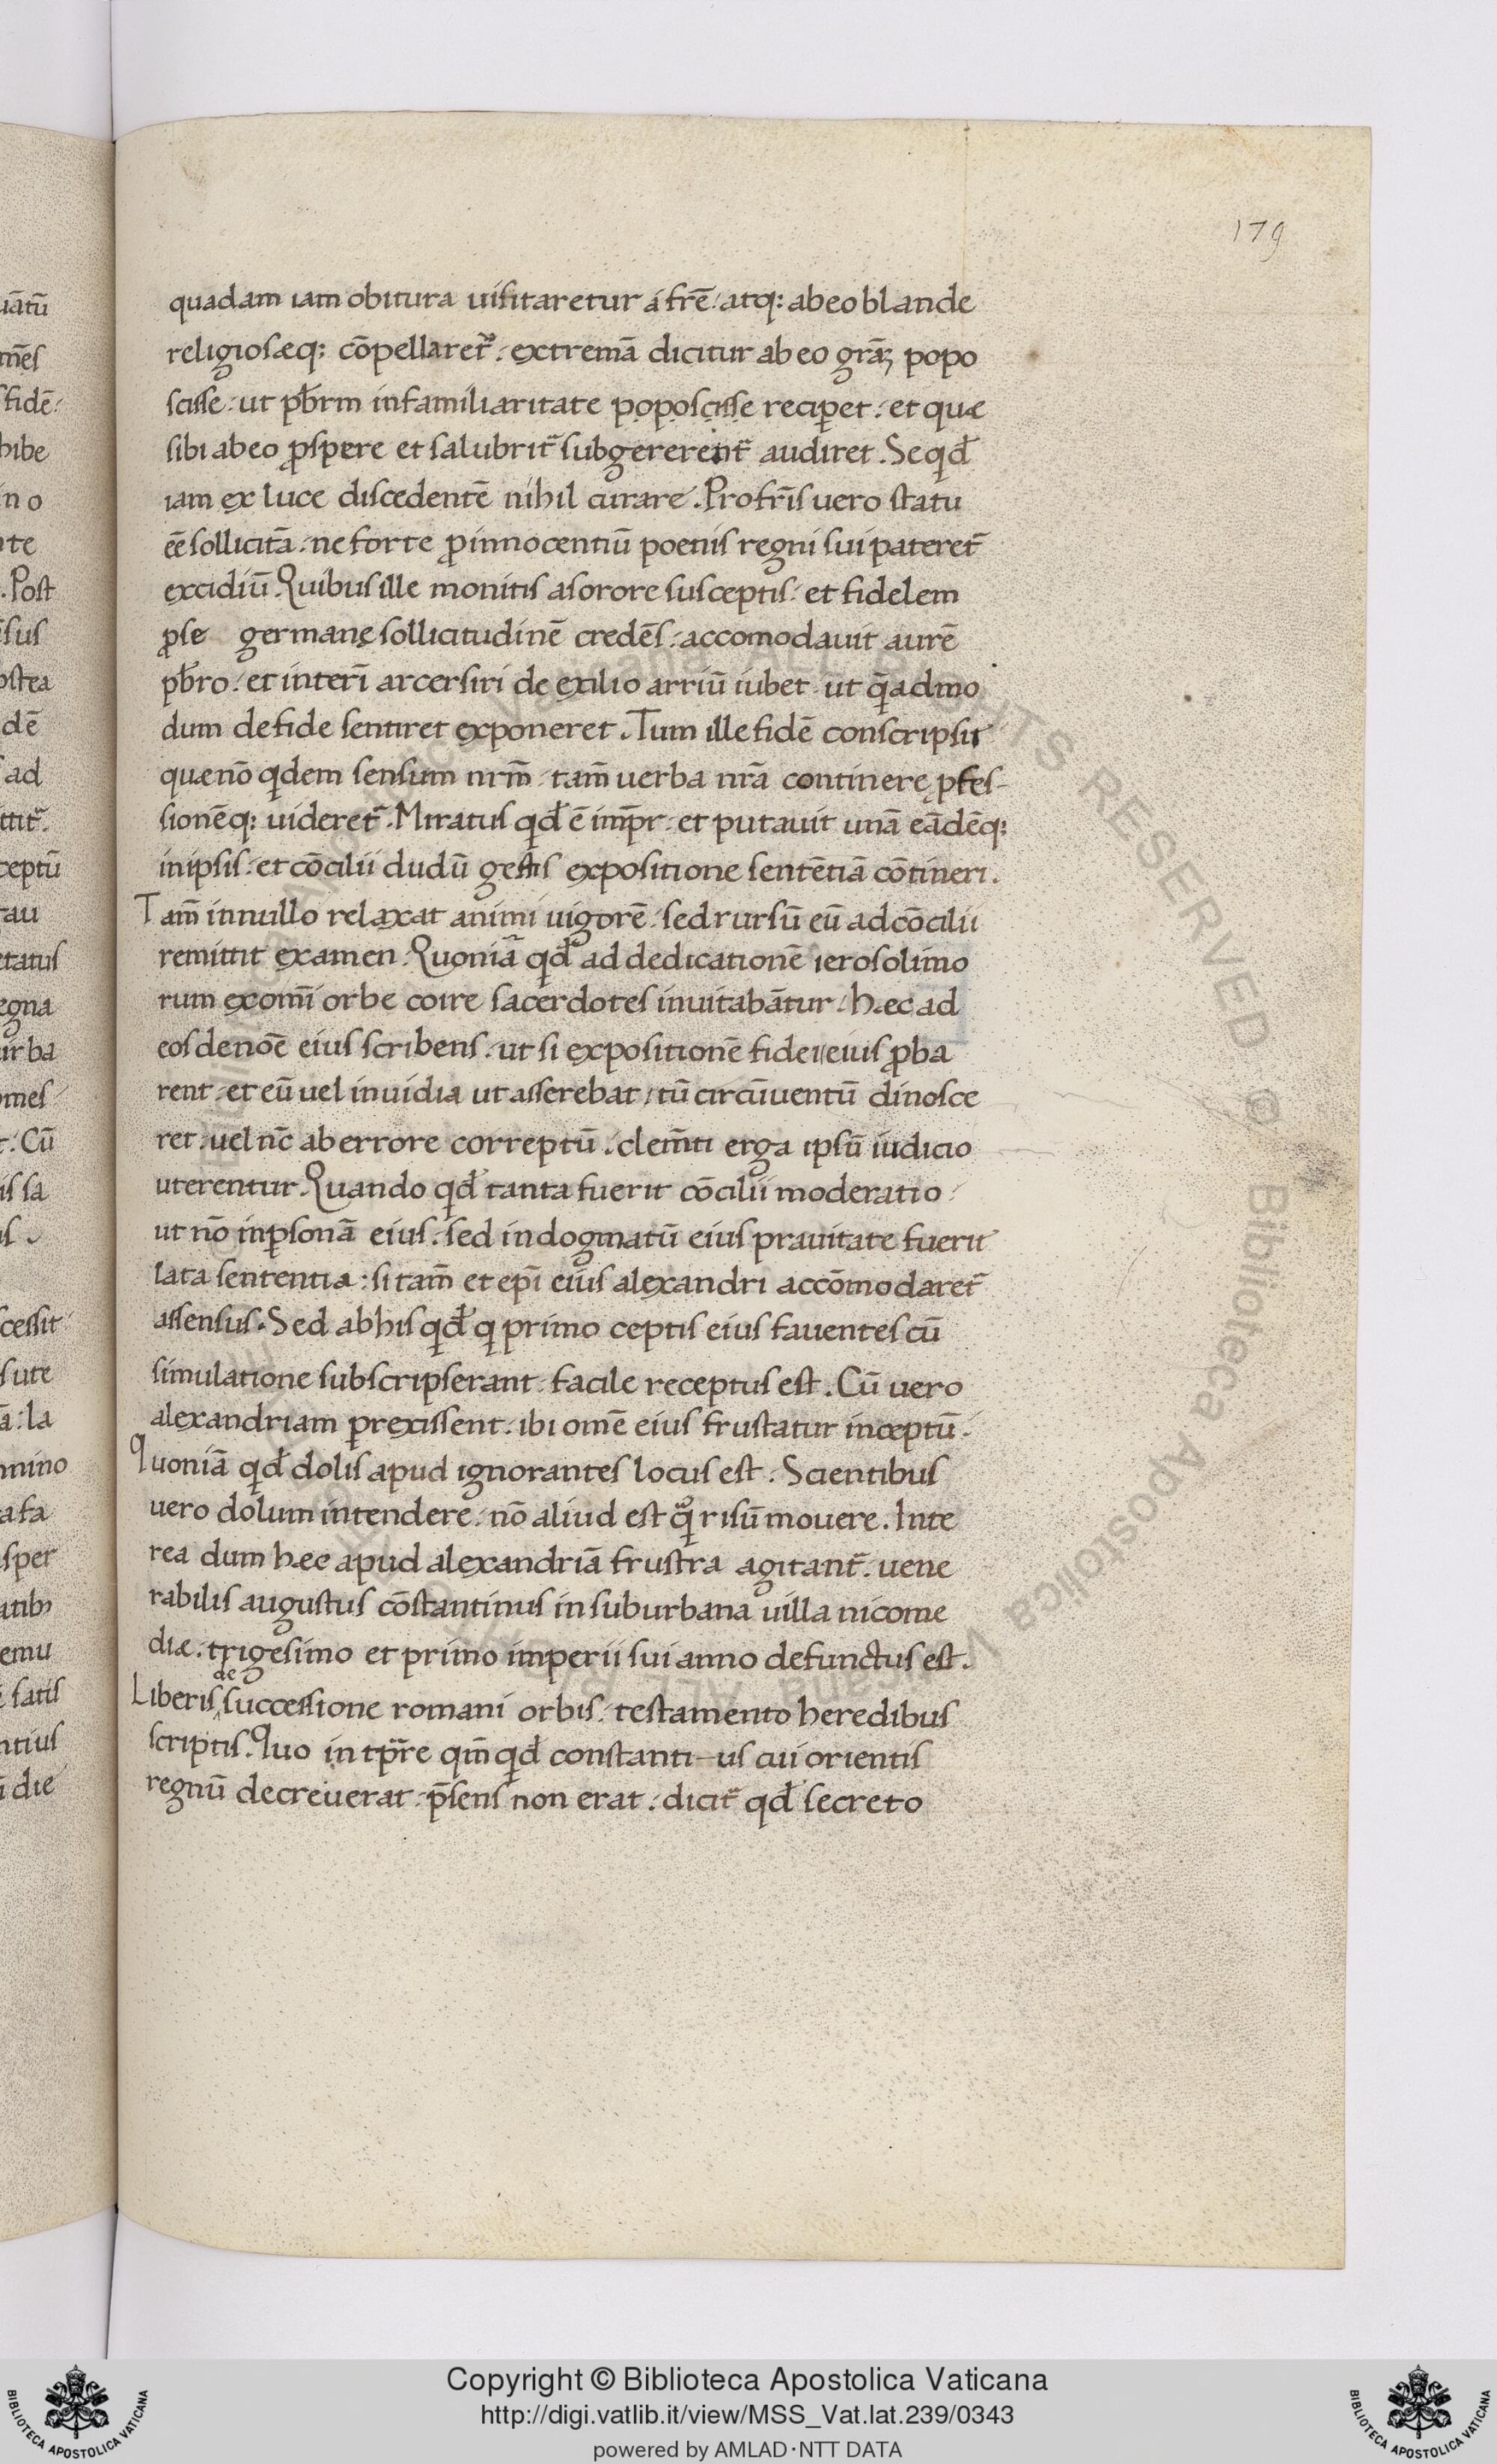 179
quadam iam obitura uisitaretur a fr̄e. atq: ab eo blande
religiosæq: cōpellaret̄. extremā dicitur ab eo gr̄aꝫ popo
scisse. ut pb̄rm in familiaritate poposcisse reciꝑet. et quæ
sibi ab eo ꝓspere et salubrit̄ subgererent̄ audiret. Se qđ
iam ex luce discedentē nihil curare. Pro fr̄is uero statu
eē sollicitā. ne forte ꝓ innocentiū poenis regni sui pateret̄
excidiū. Quibus ille monitis a sorore susceptis. et fidelem
ꝓ se germanę sollicitudinē credēs. accomodauit aurē
pb̄ro. et interī arcersiri de exilio arriū iubet. ut q̄admo
dum de fide sentiret exponeret. Tum ille fidē conscripsit
quæ nō qdem sensum nr̄m. tam̄ uerba nr̄a continere ꝓfes-
sionēq: uideret̄. Miratus qđ ē imp̄r. et putauit unā eādēq:
in ipsis. et cōcilii dudū gestis expositione sentētiā cōtineri.
Tam̄ in nullo relaxat animi uigorē. sed rursū eū ad cōcilii
remittit examen. Quoniā qđ ad dedicationē ierosolimo
rum ex omī orbe coire sacerdotes inuitabātur. hæc ad
eos de nōe eius scribens. ut si expositionē fidei eius ꝓba
rent. et eū uel inuidia ut asserebat. tū circūuentū dinosce
ret. uel nc̄ ab errore correptū. clem̄ti erga ipsū iudicio
uterentur. Quando qđ tanta fuerit cōcilii moderatio.
ut nō in ꝑsonā eius. sed in dogmatū eius prauitate fuerit
lata sententia: si tam̄ et ep̄i eius alexandri accōmodaret̄
assensus. Sed ab his qđ q primo ceptis eius fauentes cū
simulatione subscripserant. facile receptus est. Cū uero
alexandriam ꝑrexissent. ibi omē eius frustatur inceptū.
Quoniā qđ dolis apud ignorantes locus est. Scientibus
uero dolum intendere. nō aliud est q̄ risū mouere. Inte
rea dum hæc apud alexandriā frustra agitant̄. uene
rabilis augustus cōstantinus in suburbana uilla nicome
diæ. trigesimo et primo imperii sui anno defunctus est.
Liberis de successione romani orbis. testamento heredibus
scriptis. Quo in tp̄re qm̄ qđ constanti-us cui orientis
regnū decreuerat. p̄sens non erat. dicit̄ qđ secreto
Copyright © Biblioteca Apostolica Vaticana
http://digi.vatlib.it/view/MSS_Vat.lat.239/0343
powered by AMLAD·NTT DATA